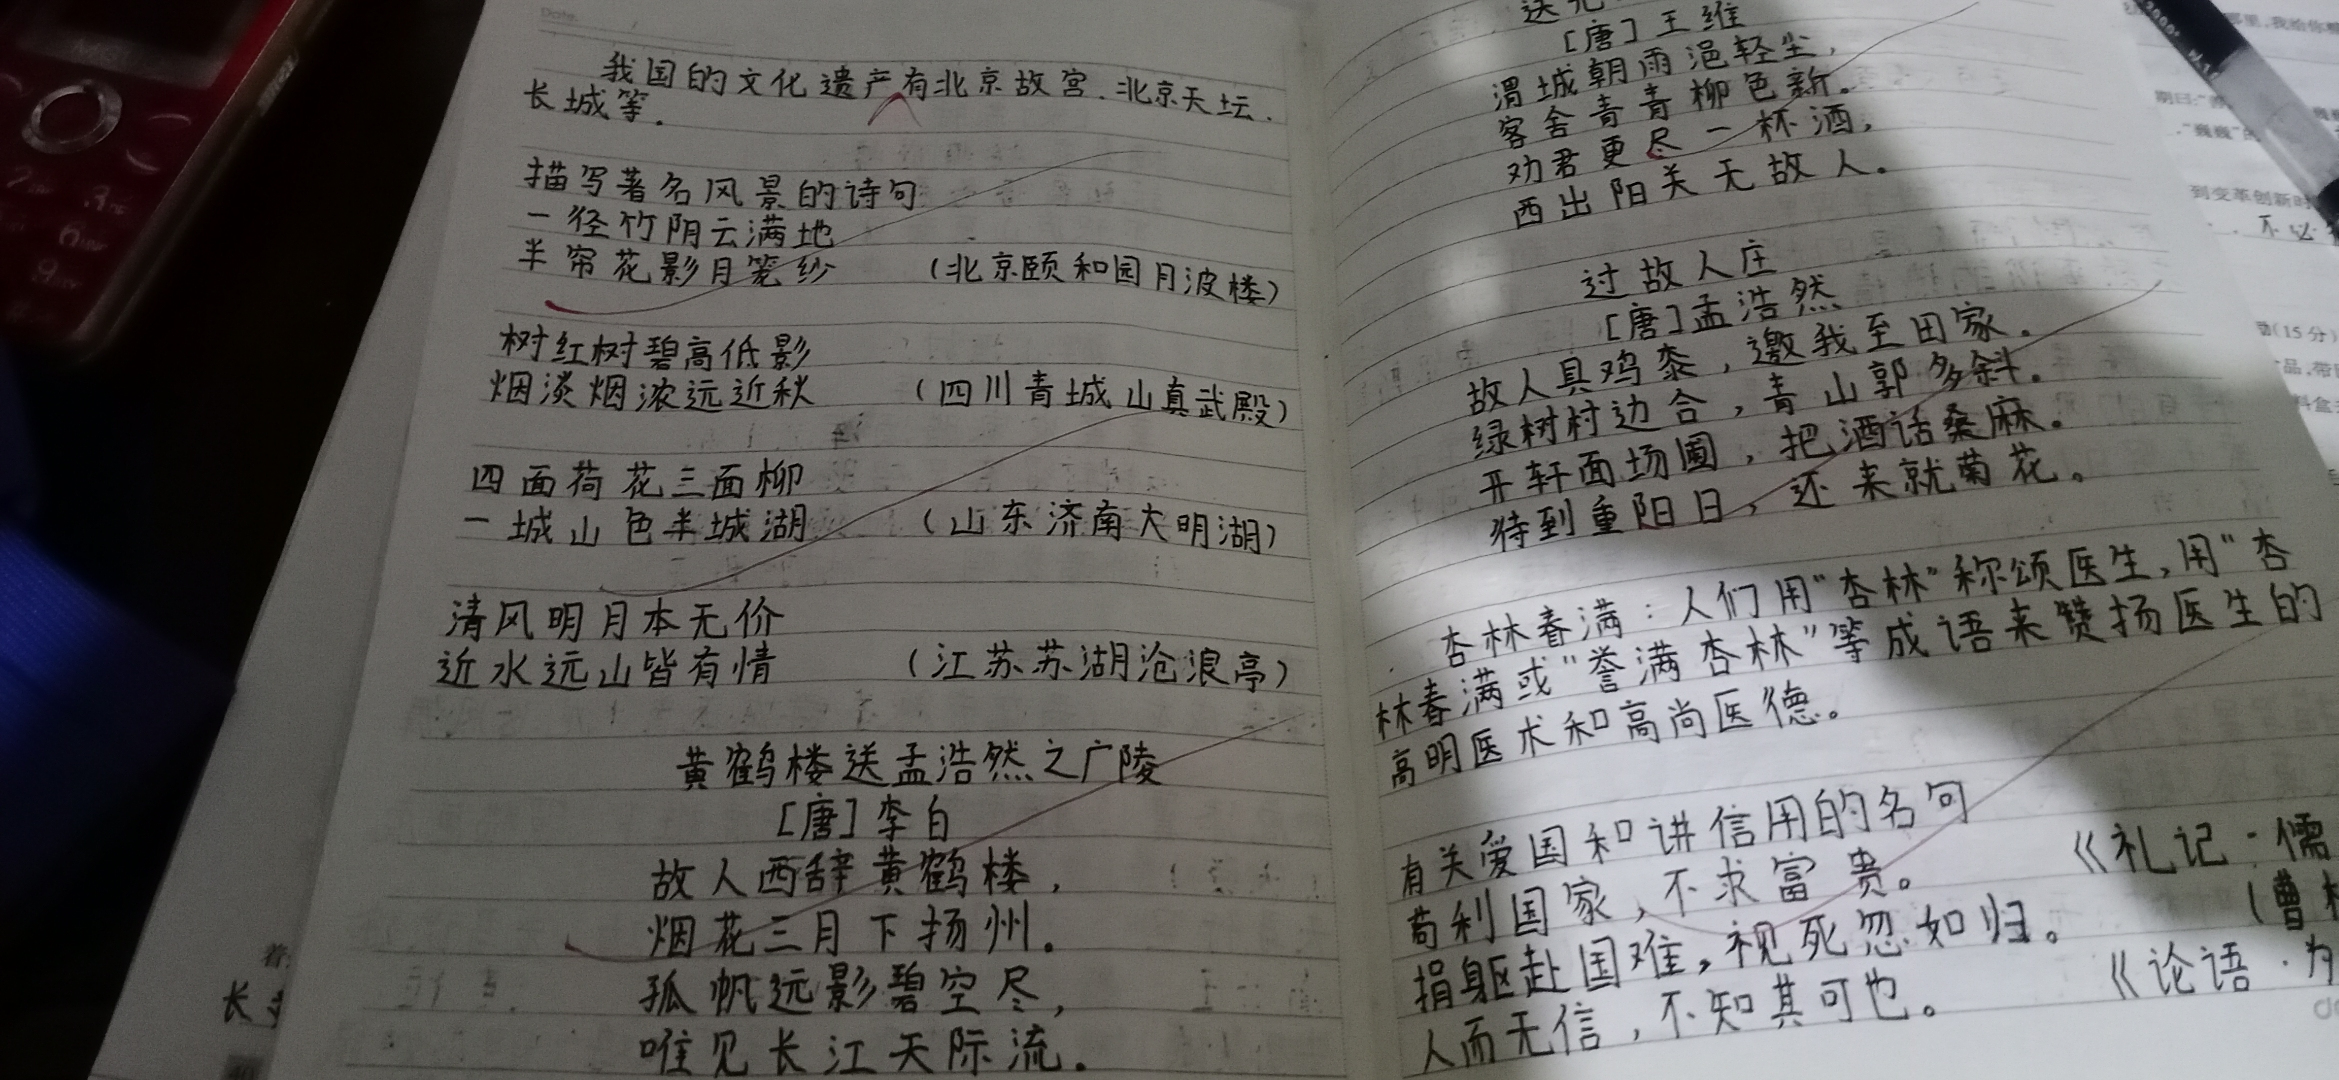 Date.
我国的文化遗产有北京故宫.北京天坛.
长城等.
描写著名风景的诗句
一径竹阴云满地
半帘花影月笼纱 (北京颐和园月波楼)
树红树碧高低影
烟淡烟浓远近秋 (四川青城山真武殿)
四面荷花三面柳
一城山色半城湖 (山东济南大明湖)
清风明月本无价
近水远山皆有情 (江苏苏湖沧浪亭)
黄鹤楼送孟浩然之广陵
[唐]李白
故人西辞黄鹤楼,
烟花三月下扬州.
孤帆远影碧空尽,
唯见长江天际流.
[唐]王维
渭城朝雨浥轻尘,
客舍青青柳色新。
劝君更尽一杯酒,
西出阳关无故人.
过故人庄
[唐]孟浩然
故人具鸡黍,邀我至田家.
绿树村边合,青山郭多斜.
开轩面场圃,把酒话桑麻.
待到重阳日,还来就菊花.
杏林春满:人们用"杏林"称颂医生,用"杏
林春满或"誉满杏林"等成语来赞扬医生的
高明医术和高尚医德。
有关爱国和讲信用的名句
苟利国家,不求富贵。 《礼记·儒
捐身躯赴国难,视死忽如归。 (曹
人而无信,不知其可也。 《论语·为
那里,我给你
到变革创新时
不必
(15分)
品,带
料盒